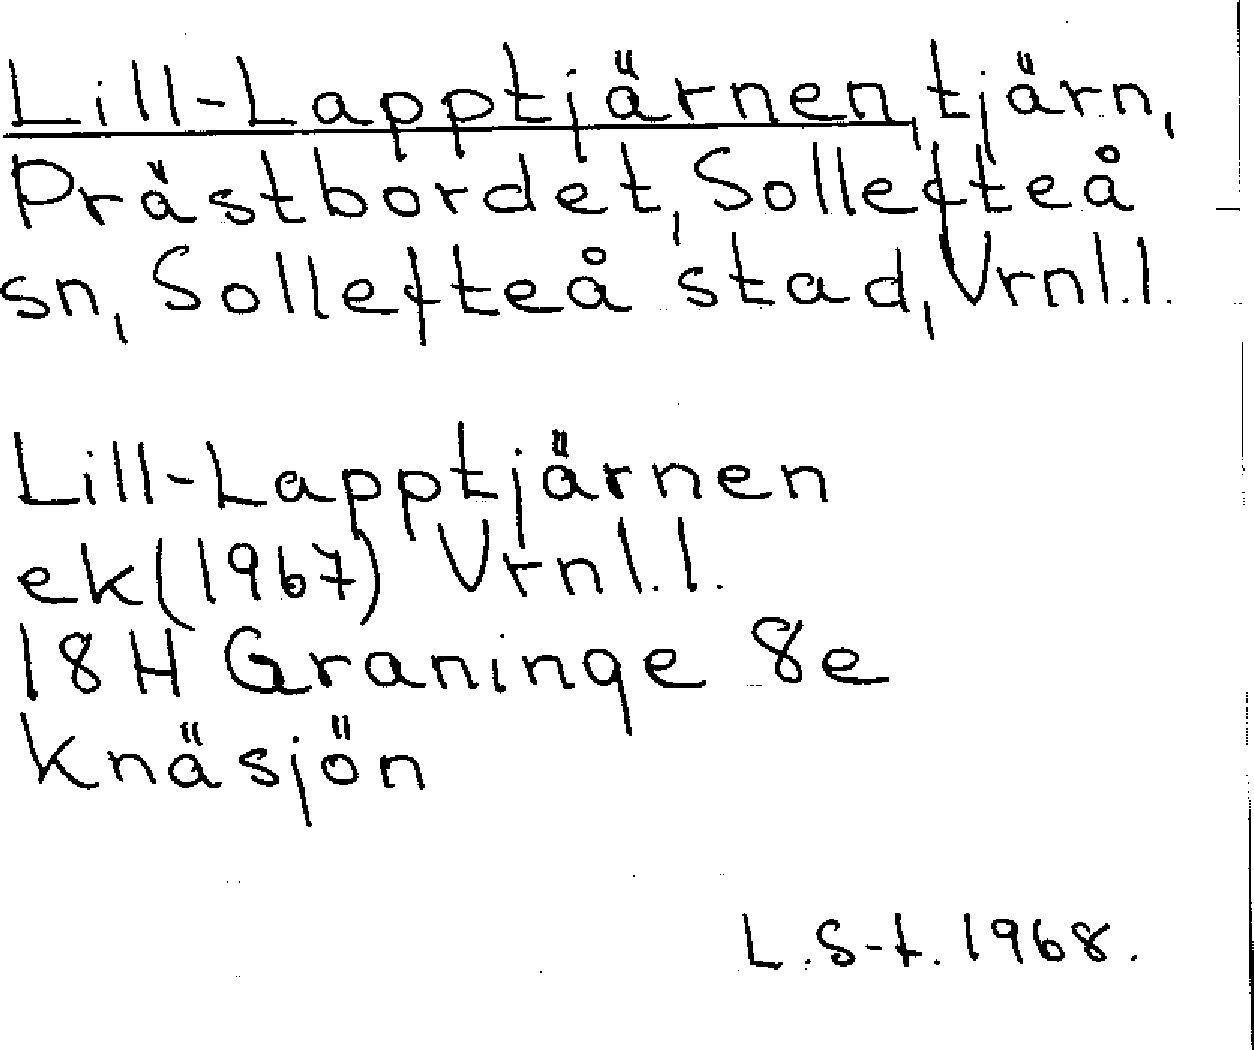 Lill-Lapptjärnen, tjärn,
Prästbordet, Sollefteå
sn, Sollefteå stad, Vrnl.l.
Lill-Lapptjärnen
ek(1967) Vrnl.l.
18H Graninge 8e
Knäsjön
L.S-t. 1968.